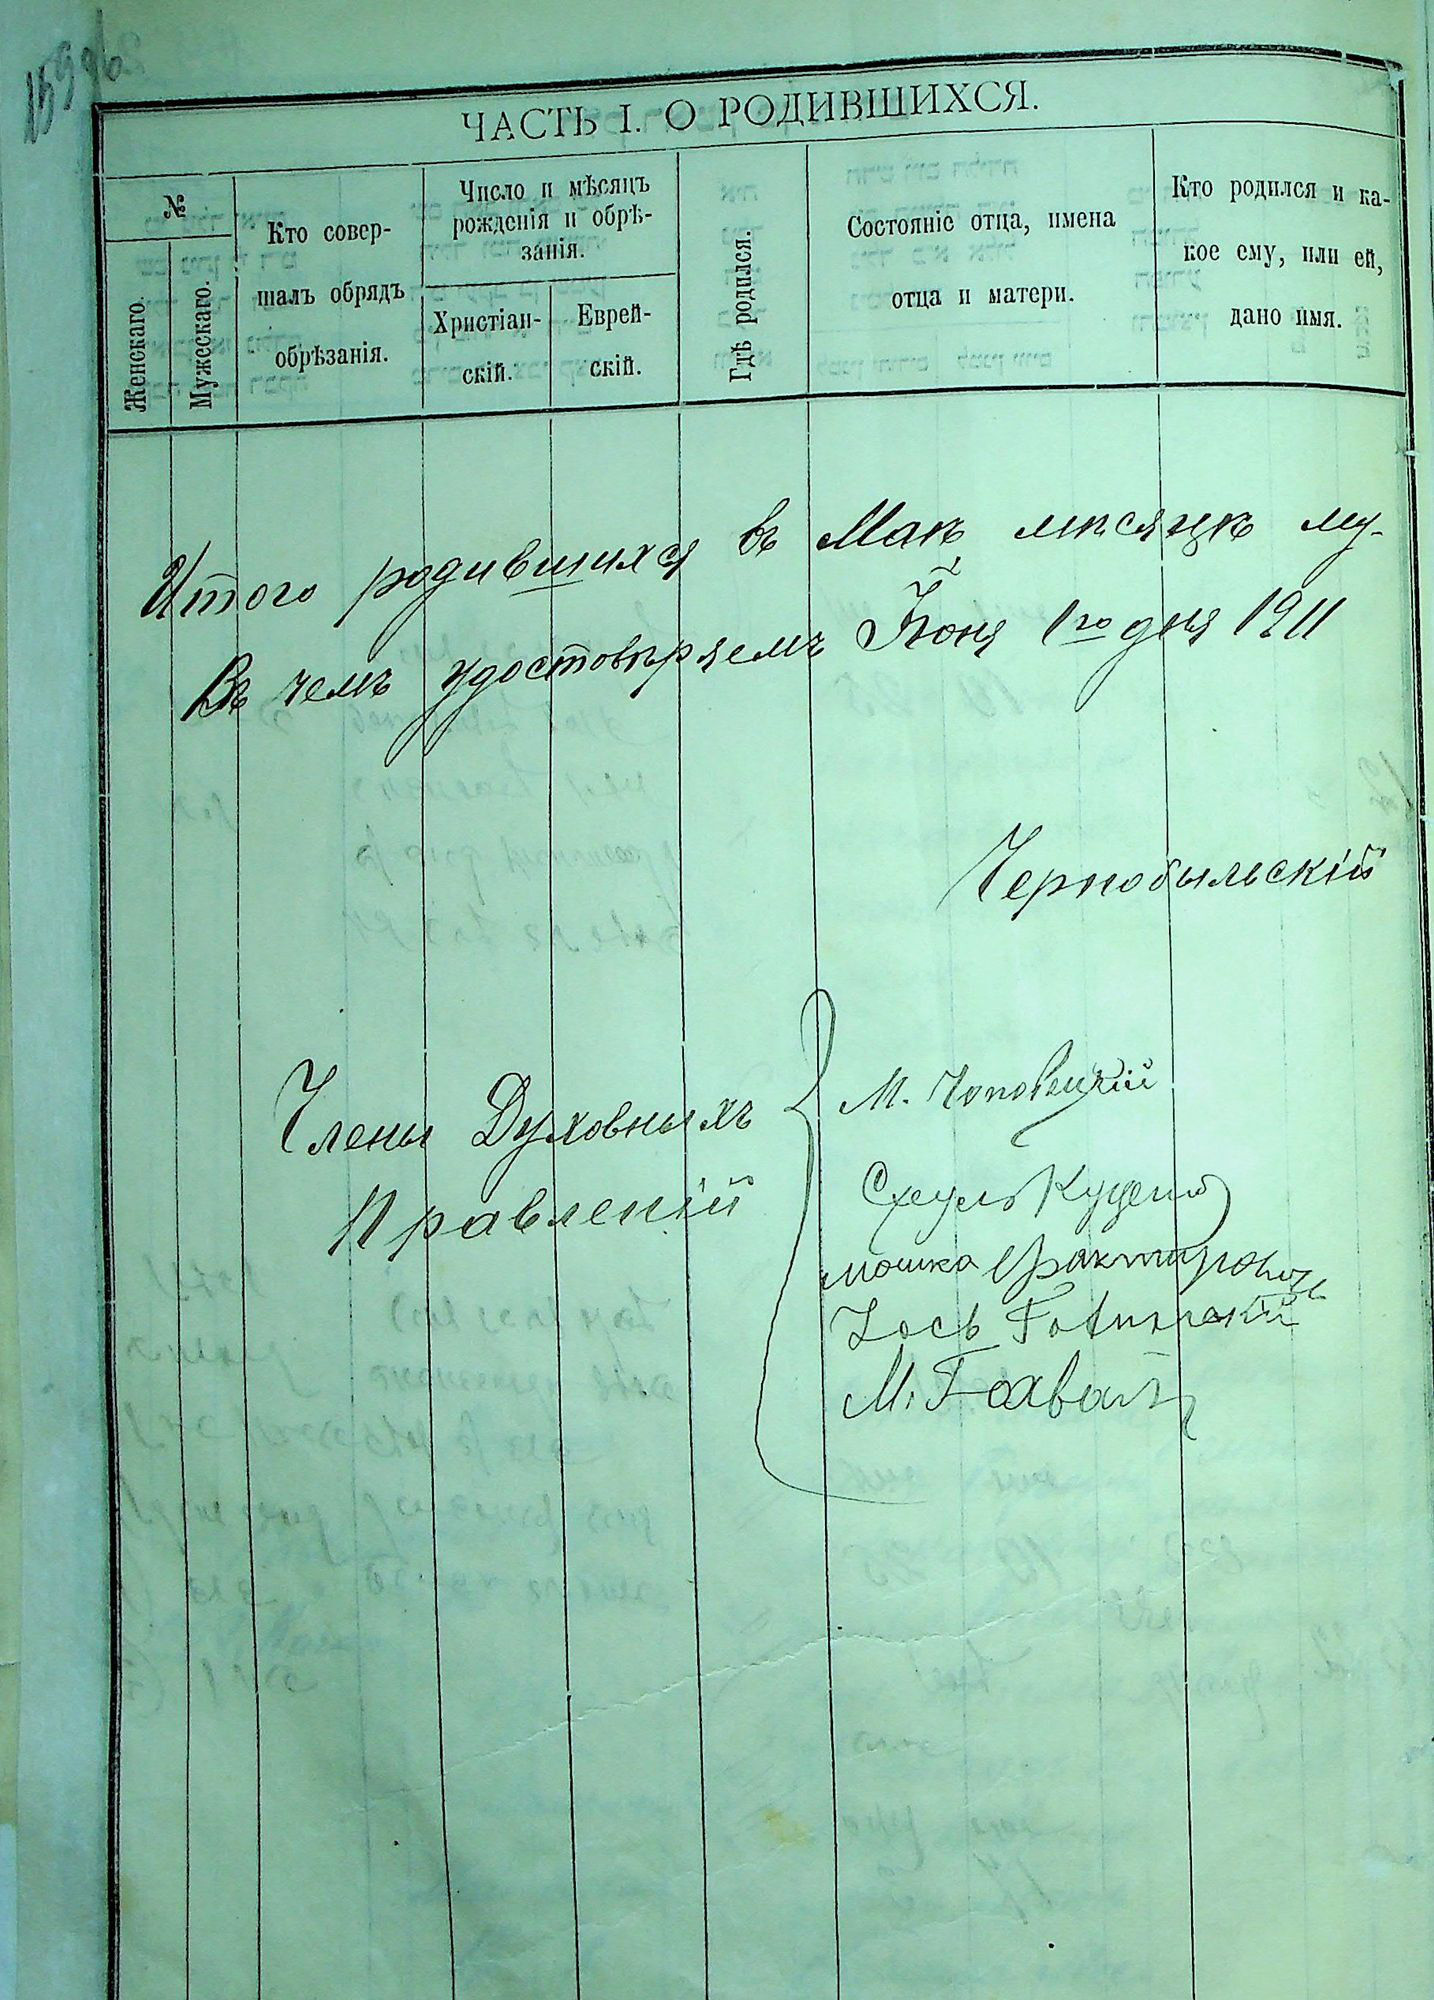 ЧАСТЬ I. О РОДИВШИХСЯ.
№
Женскаго.
Мужескаго.
Кто совер-
шалъ обрядъ
обрѣзанія.
Число и мѣсяцъ
рожденія и обрѣ-
занія.
Христіан-
скій.
Еврей-
скій.
Гдѣ родился.
Состояніе отца, имена
отца и матери.
Кто родился и ка-
кое ему, или ей,
дано имя.
Итого родившихся въ Маѣ мѣсяцѣ му-
Въ чемъ удостовѣряемъ Іюня 1го дня 1911
Чернобыльскій
Члены Духовныхъ
Правленій
М. Чоповецкій
мошка
М.